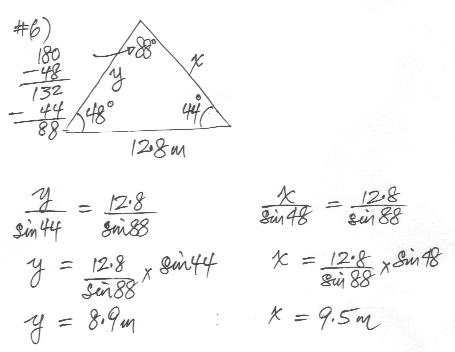 #6)
180
- 48
132
- 44
88
88°
y
x
48°
44°
12.8m
y/sin44 = 12.8/sin88
y = 12.8/sin88 × sin44
y = 8.9m
x/sin48 = 12.8/sin88
x = 12.8/sin88 × sin48
x = 9.5m